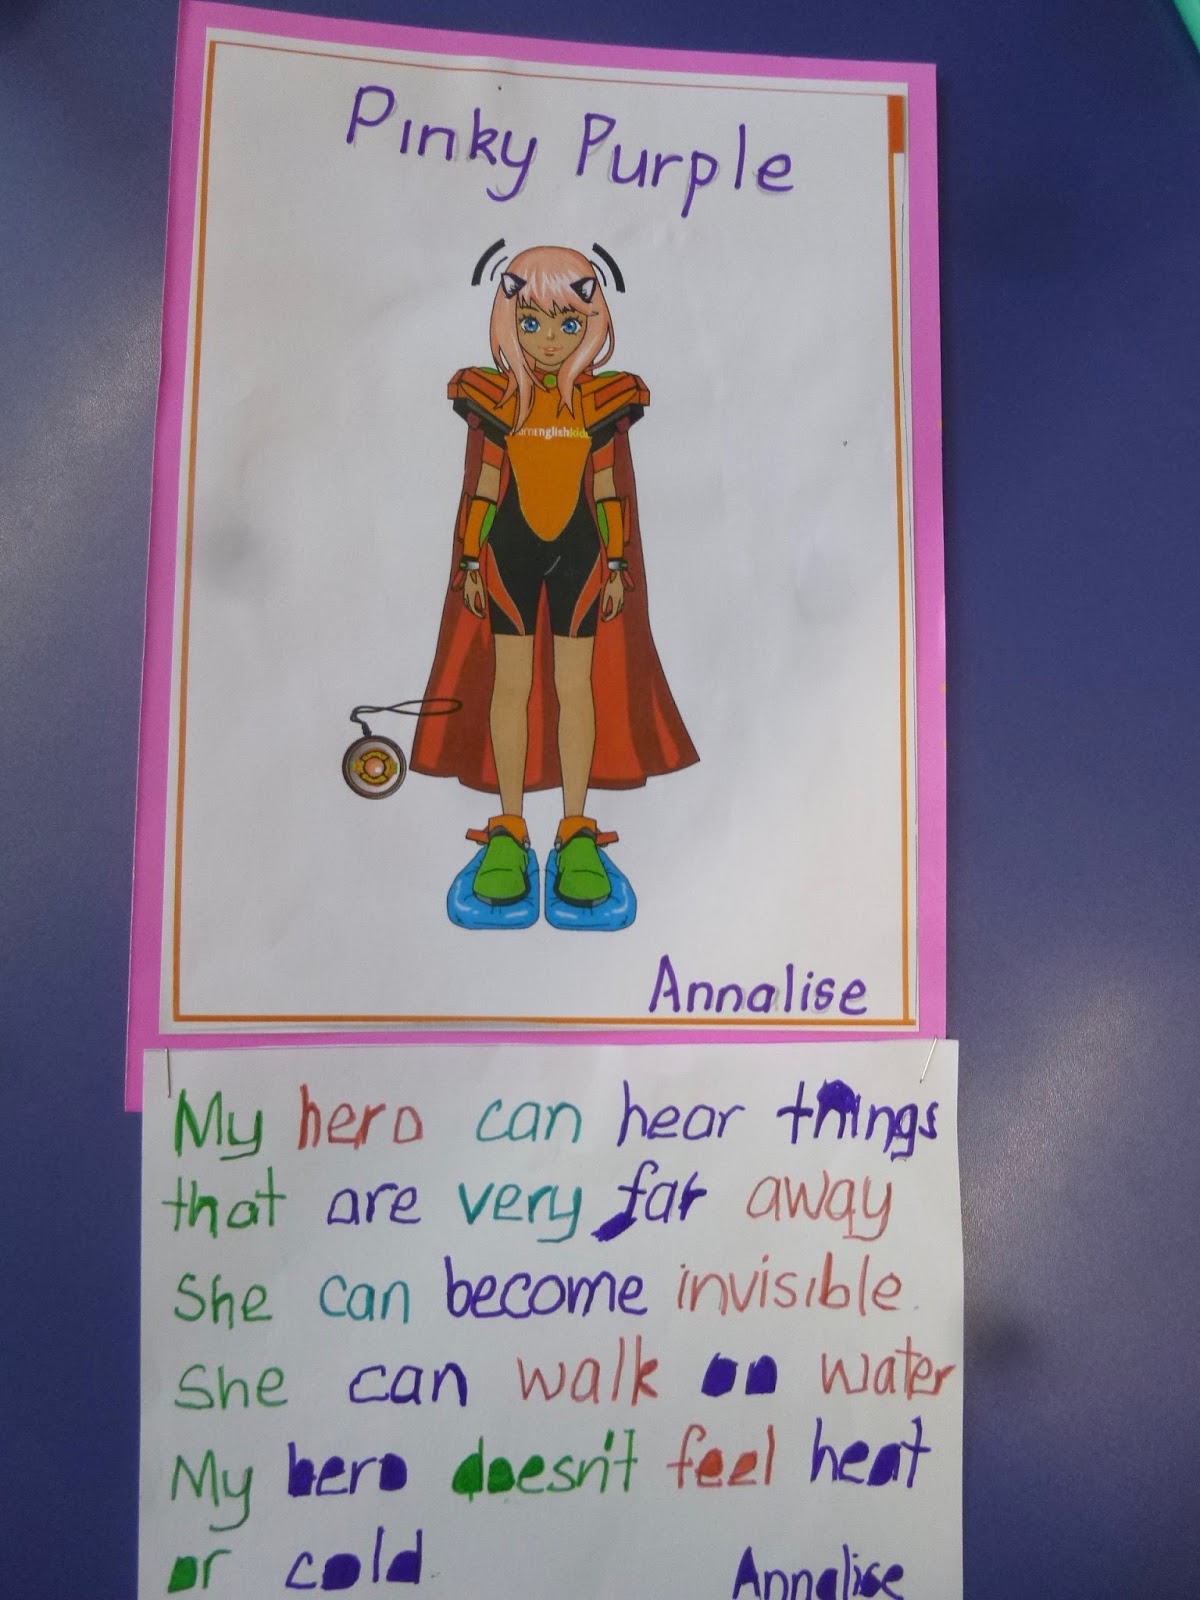 Pinky Purple
Englishkids
Annalise
My hero can hear things
that are very far away
She can become invisible.
She can walk on water
My hero doesn't feel heat
or cold
Annalise